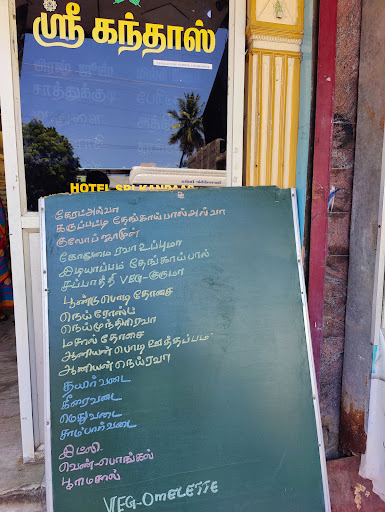 ஸ்ரீ கந்தாஸ்
சாத்துக்குடி
HOTEL SRI KANDAAS
கேரட் அல்வா
கருப்பட்டி தேங்காய் பால் அல்வா
குலோப் ஜாமுன்
கோதுமை ரவா உப்புமா
இடியாப்பம் தேங்காய் பால்
சப்பாத்தி VEG-குருமா
பூண்டு பொடி தோசை
நெய் ரோஸ்ட்
நெய் முந்திரி ரவா
மசால் தோசை
ஆனியன் பொடி ஊத்தப்பம்
ஆனியன் நெய்ரவா
தயிர்வடை
கீரைவடை
மெதுவடை
சாம்பார்வடை
இட்லி
வெண்-பொங்கல்
பூரிமசால்
VEG-OMELETTE